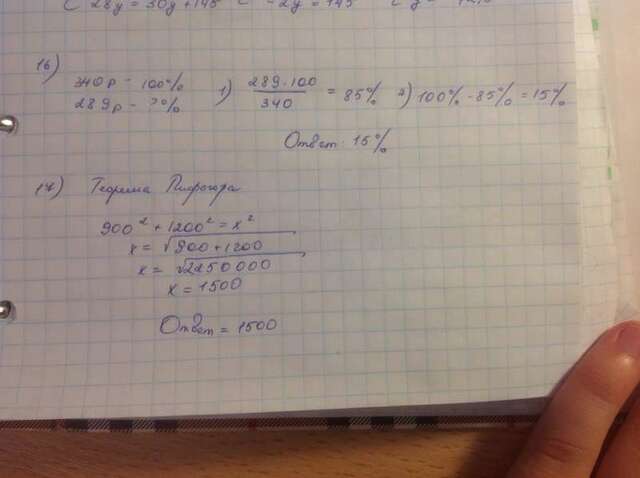 28y = 30y + 145 -2y = 145
16)
340р - 100%
289р - ?%
1) 289·100 / 340 = 85% 2) 100% - 85% = 15%
Ответ: 15%
17) Теорема Пифагора
900² + 1200² = x²
x = √900 + 1200
x = √2250000
x = 1500
Ответ = 1500